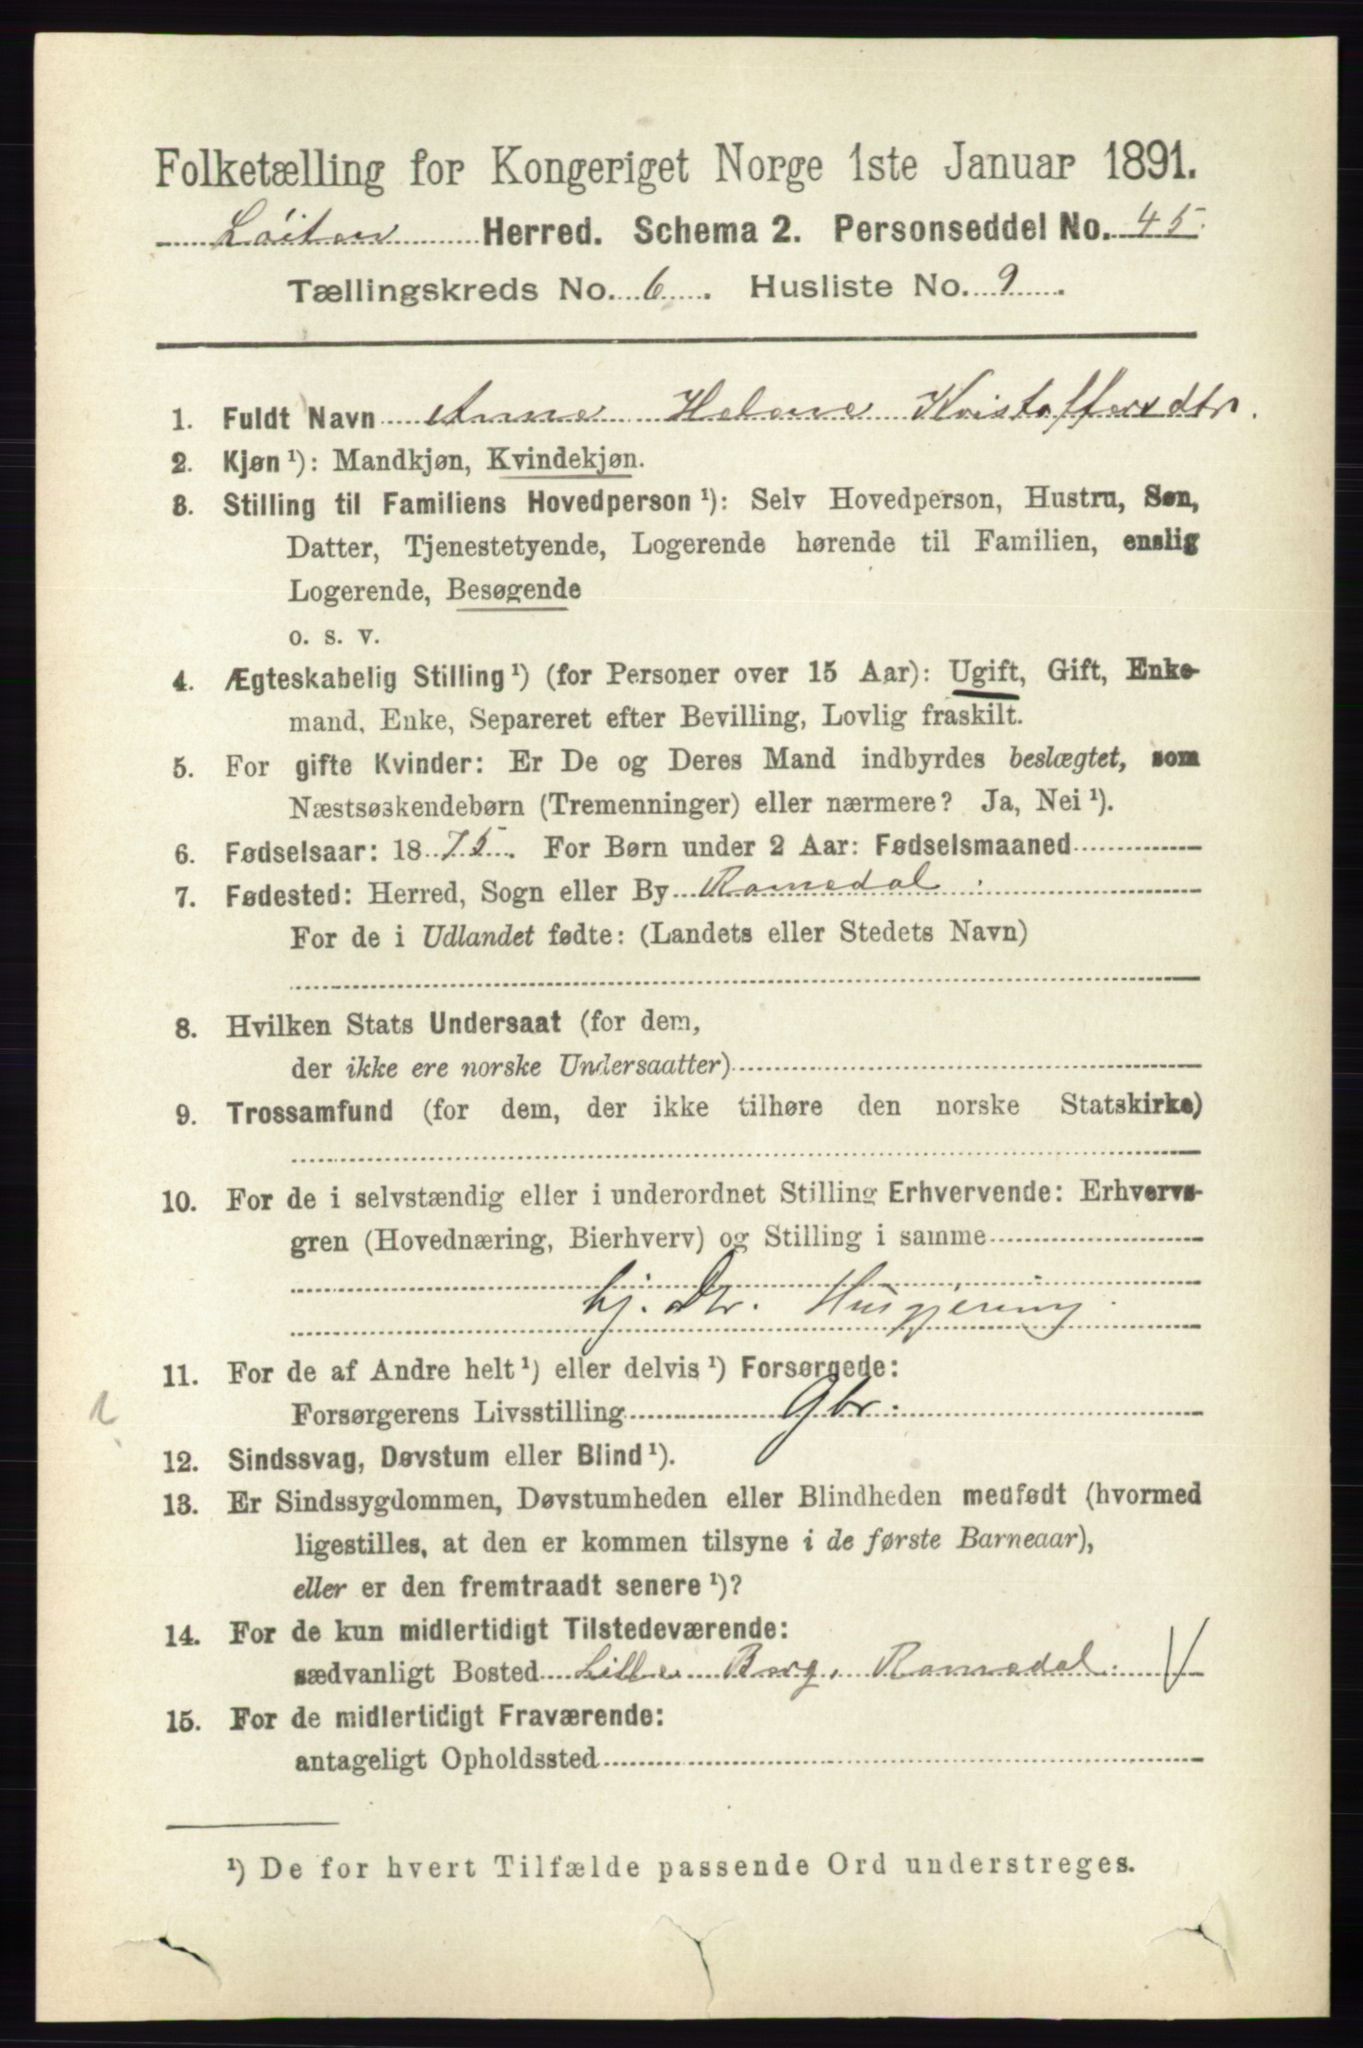 Folketælling for Kongeriget Norge 1ste Januar 1891.
Løiten Herred. Schema 2. Personseddel No. 45.
Tællingskreds No. 6. Husliste No. 9.
1. Fuldt Navn Anne Helene Kristoffersdtr.
2. Kjøn ¹): Mandkjøn, Kvindekjøn.
3. Stilling til Familiens Hovedperson ¹): Selv Hovedperson, Hustru, Søn,
Datter, Tjenestetyende, Logerende hørende til Familien, enslig
Logerende, Besøgende
o. s. v.
4. Ægteskabelig Stilling ¹) (for Personer over 15 Aar): Ugift, Gift, Enke-
mand, Enke, Separeret efter Bevilling, Lovlig fraskilt.
5. For gifte Kvinder: Er De og Deres Mand indbyrdes beslægtet, som
Næstsøskendebørn (Tremenninger) eller nærmere? Ja, Nei ¹).
6. Fødselsaar: 1875. For Børn under 2 Aar: Fødselsmaaned
7. Fødested: Herred, Sogn eller By Romedal.
For de i Udlandet fødte: (Landets eller Stedets Navn)
8. Hvilken Stats Undersaat (for dem,
der ikke ere norske Undersaatter)
9. Trossamfund (for dem, der ikke tilhøre den norske Statskirke)
10. For de i selvstændig eller i underordnet Stilling Erhvervende: Erhvervs-
gren (Hovednæring, Bierhverv) og Stilling i samme
hj. Dtr. Husgjerning.
11. For de af Andre helt ¹) eller delvis ¹) Forsørgede:
Forsørgerens Livsstilling Gbr.
12. Sindssvag, Døvstum eller Blind ¹).
13. Er Sindssygdommen, Døvstumheden eller Blindheden medfødt (hvormed
ligestilles, at den er kommen tilsyne i de første Barneaar),
eller er den fremtraadt senere ¹)?
14. For de kun midlertidigt Tilstedeværende:
sædvanligt Bosted Lille Berg, Romedal.
15. For de midlertidigt Fraværende:
antageligt Opholdssted
¹) De for hvert Tilfælde passende Ord understreges.